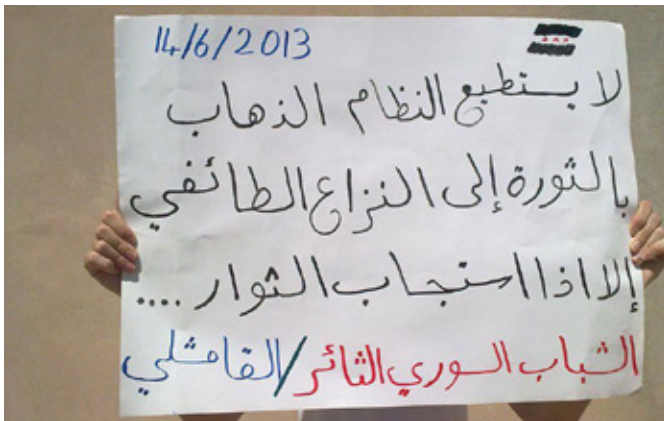 14/6/2013
لا يستطيع النظام الذهاب
بالثورة إلى النزاع الطائفي
إلا اذا استجاب الثوار ....
الشباب السوري الثائر/القامشلي